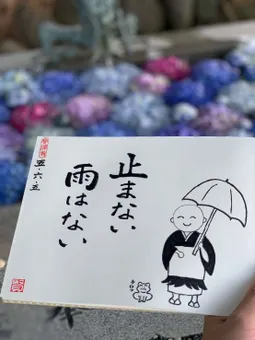 止まない
雨はない
五・六・五